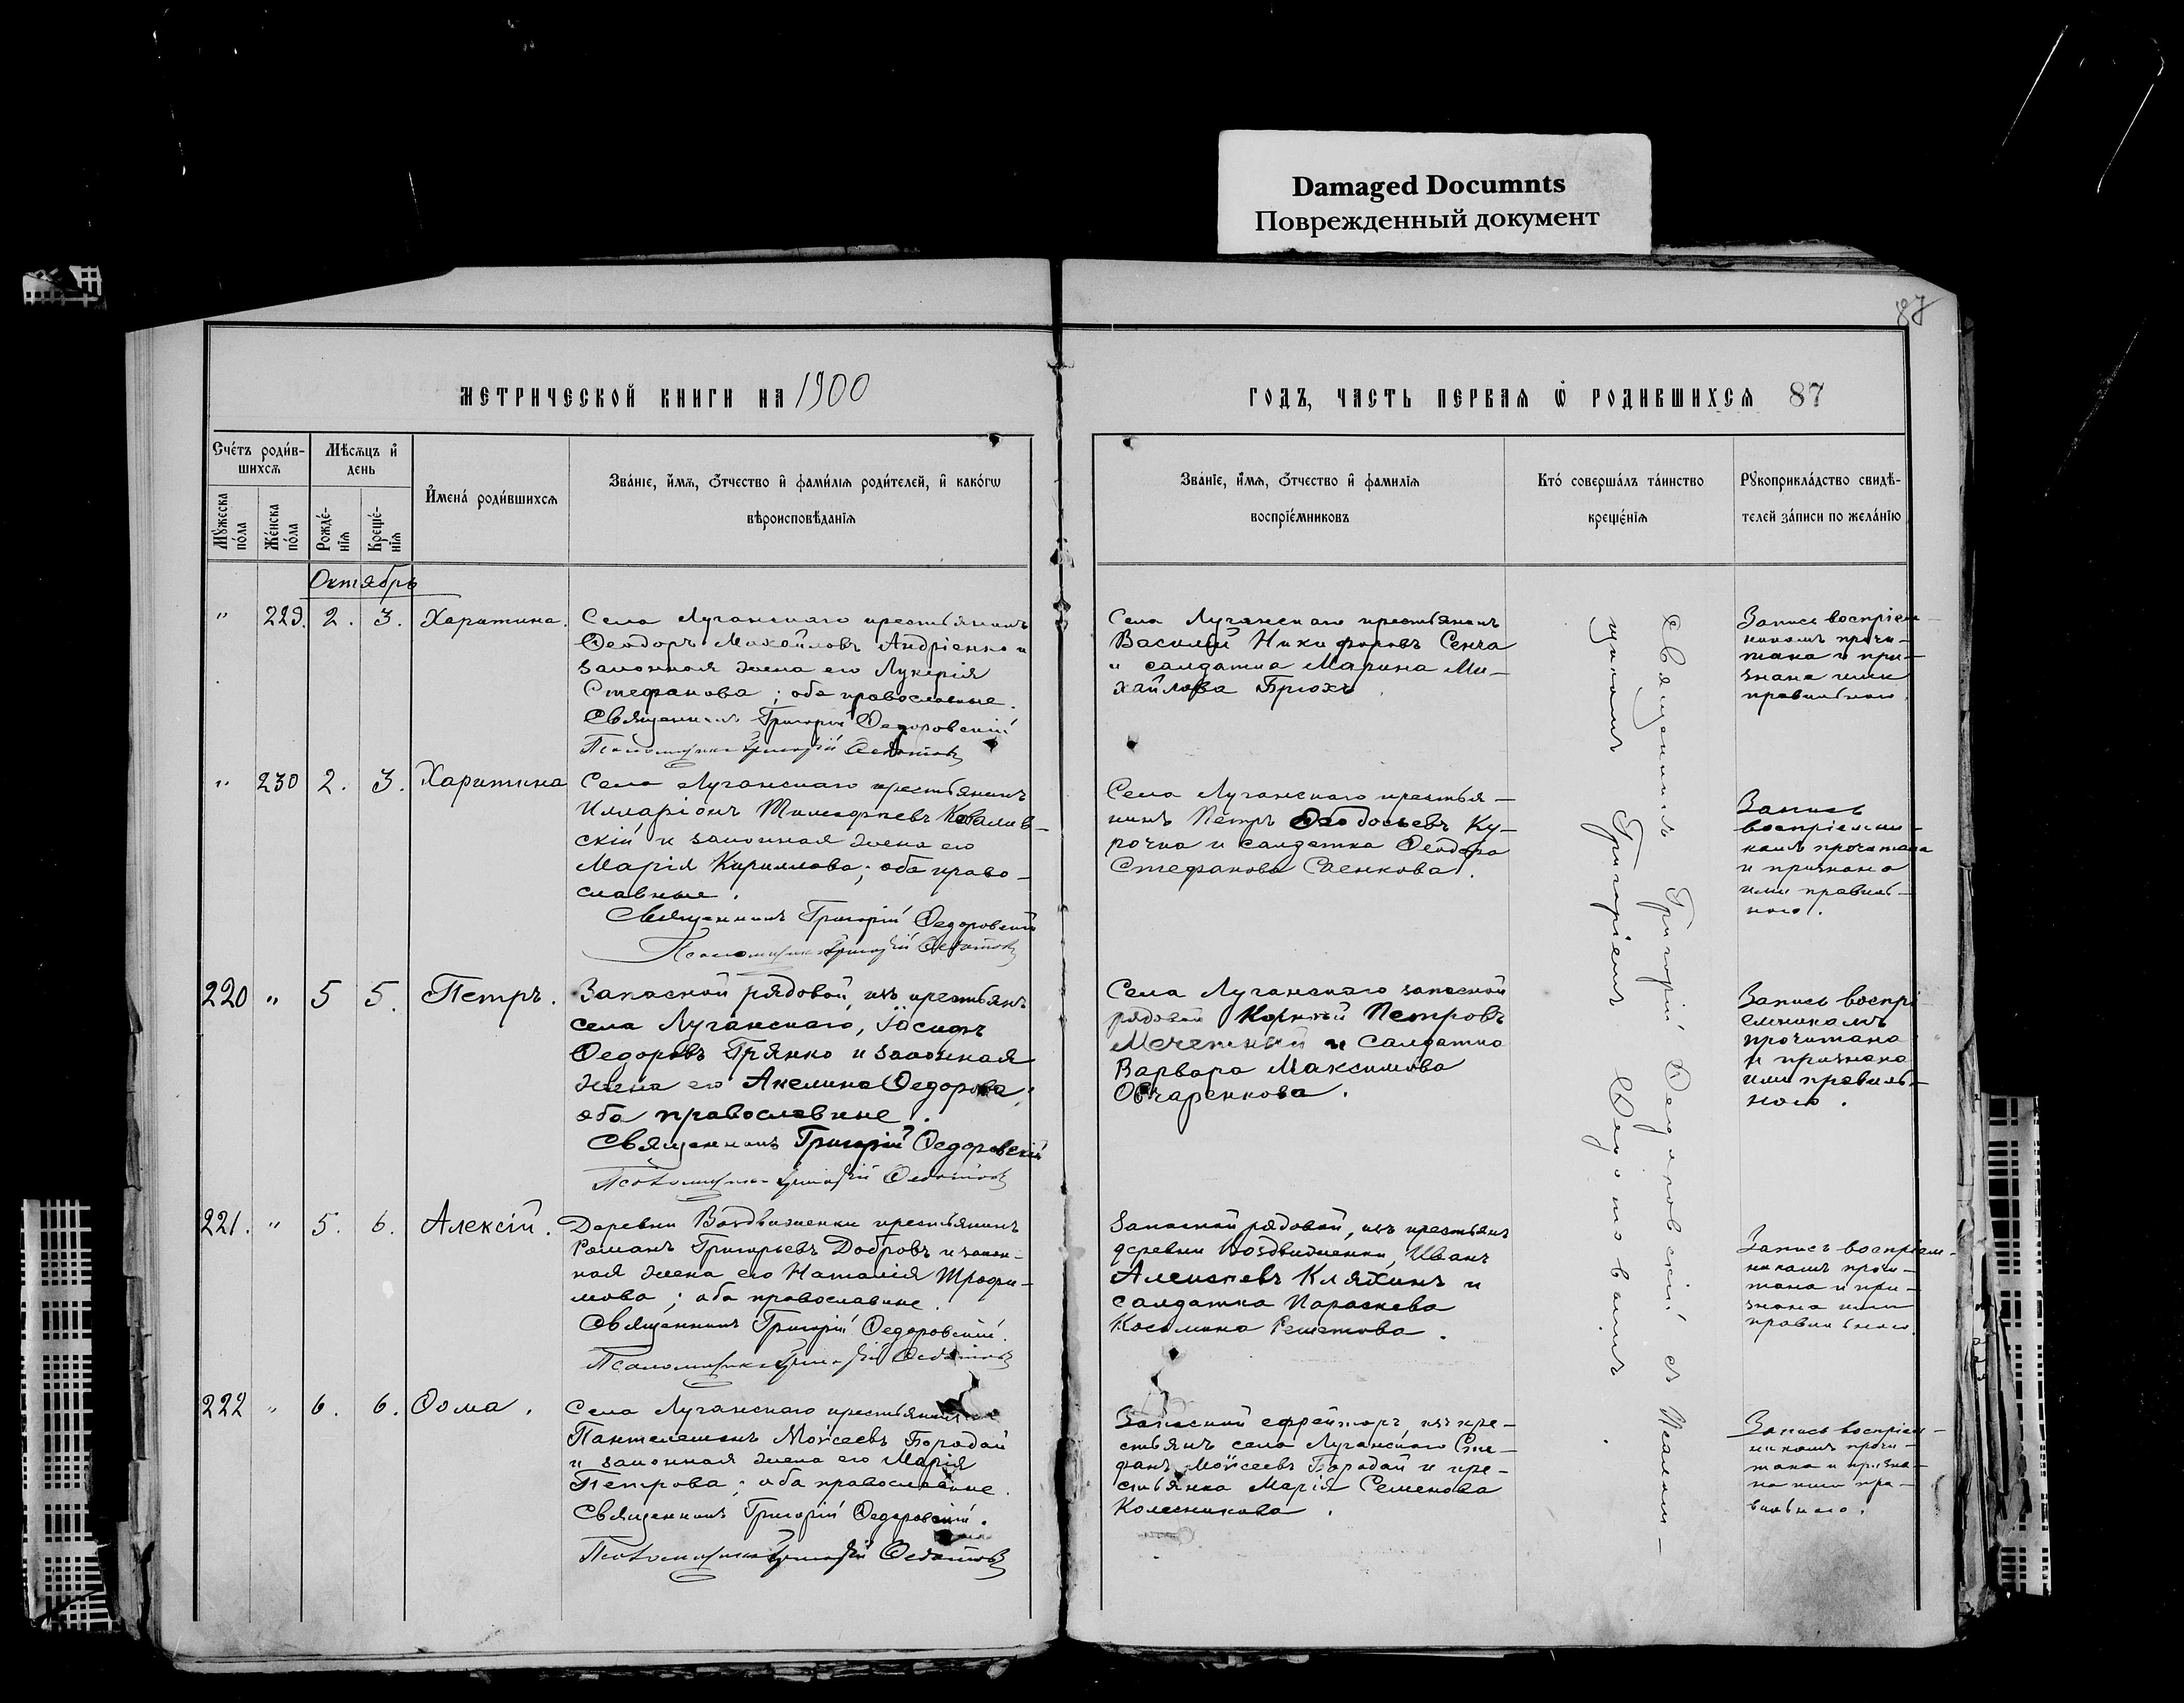 Damaged Documnts
Поврежденный документ
87
МЕТРИЧЕСКОЙ КНИГИ НА 1900
ГОДЪ, ЧАСТЬ ПЕРВАЯ Ѡ РОДИВШИХСЯ 87
Сче́тъ роди́в-
шихсѧ
Мѣ́сѧцъ и҆
день
Мꙋ́жеска
по́ла
Же́нска
по́ла
Рожде́-
нїѧ
Креще́-
нїѧ
И҆мена̀ роди́вшихсѧ
Зва́нїе, и҆́мѧ, ѻ҆́тчество и҆ фами́лїѧ роди́телей, и҆ како́гѡ
вѣроисповѣ́данїѧ
Зва́нїе, и҆́мѧ, ѻ҆́тчество и҆ фами́лїѧ
воспрїе́мниковъ
Кто̀ соверша́лъ та́инство
креще́нїѧ
Рꙋкоприкла́дство свидѣ́-
телей за́писи по жела́нїю
Октябрь
" 229. 2. 3. Харитина.
Села Луганскаго крестьянинъ
Ѳеодоръ Михайловъ Андріенко и
законная жена его Лукерія
Стефанова; оба православные.
Священникъ Григорій Ѳедоровскій
Псаломщикъ Григорій Ѳедотовъ
Села Луганскаго крестьянинъ
Василій Никифоровъ Сенча
и солдатка Марина Ми-
хайлова Брюхъ.
Запись воспріем-
никамъ прочи-
тана и при-
знана ими
правильною.
" 230 2. 3. Харитина
Села Луганскаго крестьянинъ
Илларіонъ Тимофеевъ Ковалив-
скій и законная жена его
Марія Кириллова; оба право-
славные.
Священникъ Григорій Ѳедоровскій
Псаломщикъ Григорій Ѳедотовъ
Села Луганскаго крестья-
нинъ Петръ Ѳеодосьевъ Ку-
рочка и солдатка Ѳеодора
Стефанова Саенкова.
Запись
воспріемни-
камъ прочитана
и признана
ими правиль-
ною.
220 " 5 5. Петръ.
Запасной рядовой, изъ крестьянъ
села Луганскаго, Іосифъ
Ѳедоровъ Грянко и законная
жена его Акелина Ѳедорова;
оба православные.
Священникъ Григорій Ѳедоровскій
Псаломщикъ Григорій Ѳедотовъ
Села Луганскаго запасной
рядовой Корнѣй Петровъ
Мечетный и солдатка
Варвара Максимова
Овчаренкова.
Запись воспрі-
емникамъ
прочитана
и признана
ими правиль-
ною.
221. " 5. 6. Алексій.
Деревни Воздвиженки крестьянинъ
Романъ Григорьевъ Добровъ и закон-
ная жена его Наталія Трофи-
мова; оба православные.
Священникъ Григорій Ѳедоровскій.
Псаломщикъ Григорій Ѳедотовъ
Запасной рядовой, изъ крестьянъ
деревни Воздвиженки, Иванъ
Алексѣевъ Кляхинъ и
солдатка Параскева
Косьмина Решетова.
Запись воспріем-
никамъ прочи-
тана и при-
знана ими
правильною.
222 " 6. 6. Ѳома.
Села Луганскаго крестьянинъ
Пантелеимонъ Моѵсеевъ Бородай
и законная жена его Марія
Петрова; оба православные.
Священникъ Григорій Ѳедоровскій.
Псаломщикъ Григорій Ѳедотовъ
Запасной ефрейторъ, изъ кре-
стьянъ села Луганскаго Сте-
фанъ Моѵсеевъ Бородай и кре-
стьянка Марія Семенова
Колесникова.
Запись воспріем-
никамъ прочи-
тана и призна-
на ими пра-
вильною.
Священникъ Григорій Ѳедоровскій съ Псалом-
щикомъ Григоріемъ Ѳедотовымъ.